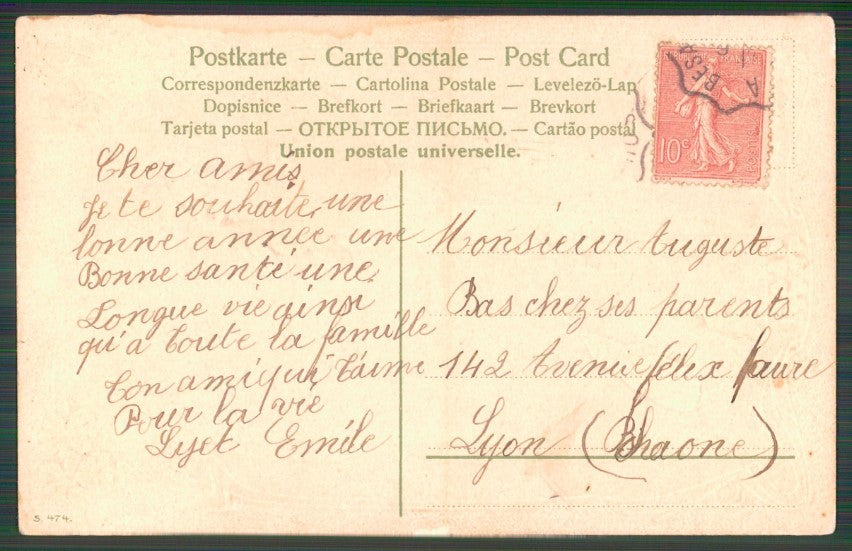 Postkarte — Carte Postale — Post Card
Correspondenzkarte — Cartolina Postale — Levelezö-Lap
Dopisnice — Brefkort — Briefkaart — Brevkort
Tarjeta postal — ОТКРЫТОЕ ПИСЬМО. — Cartão postal
Union postale universelle.
RÉPUBLIQUE FRANÇAISE
10c
POSTES
BESA
A
Cher amis
Je te souhaite une
bonne année une
Bonne santé une
Longue vie ainsi
qu'a toute la famille
Ton ami qui t'aime
Pour la vie
Lyet Emile
Monsieur Auguste
Bas chez ses parents
142 Avenue félix faure
Lyon (Rhaone)
S. 474.